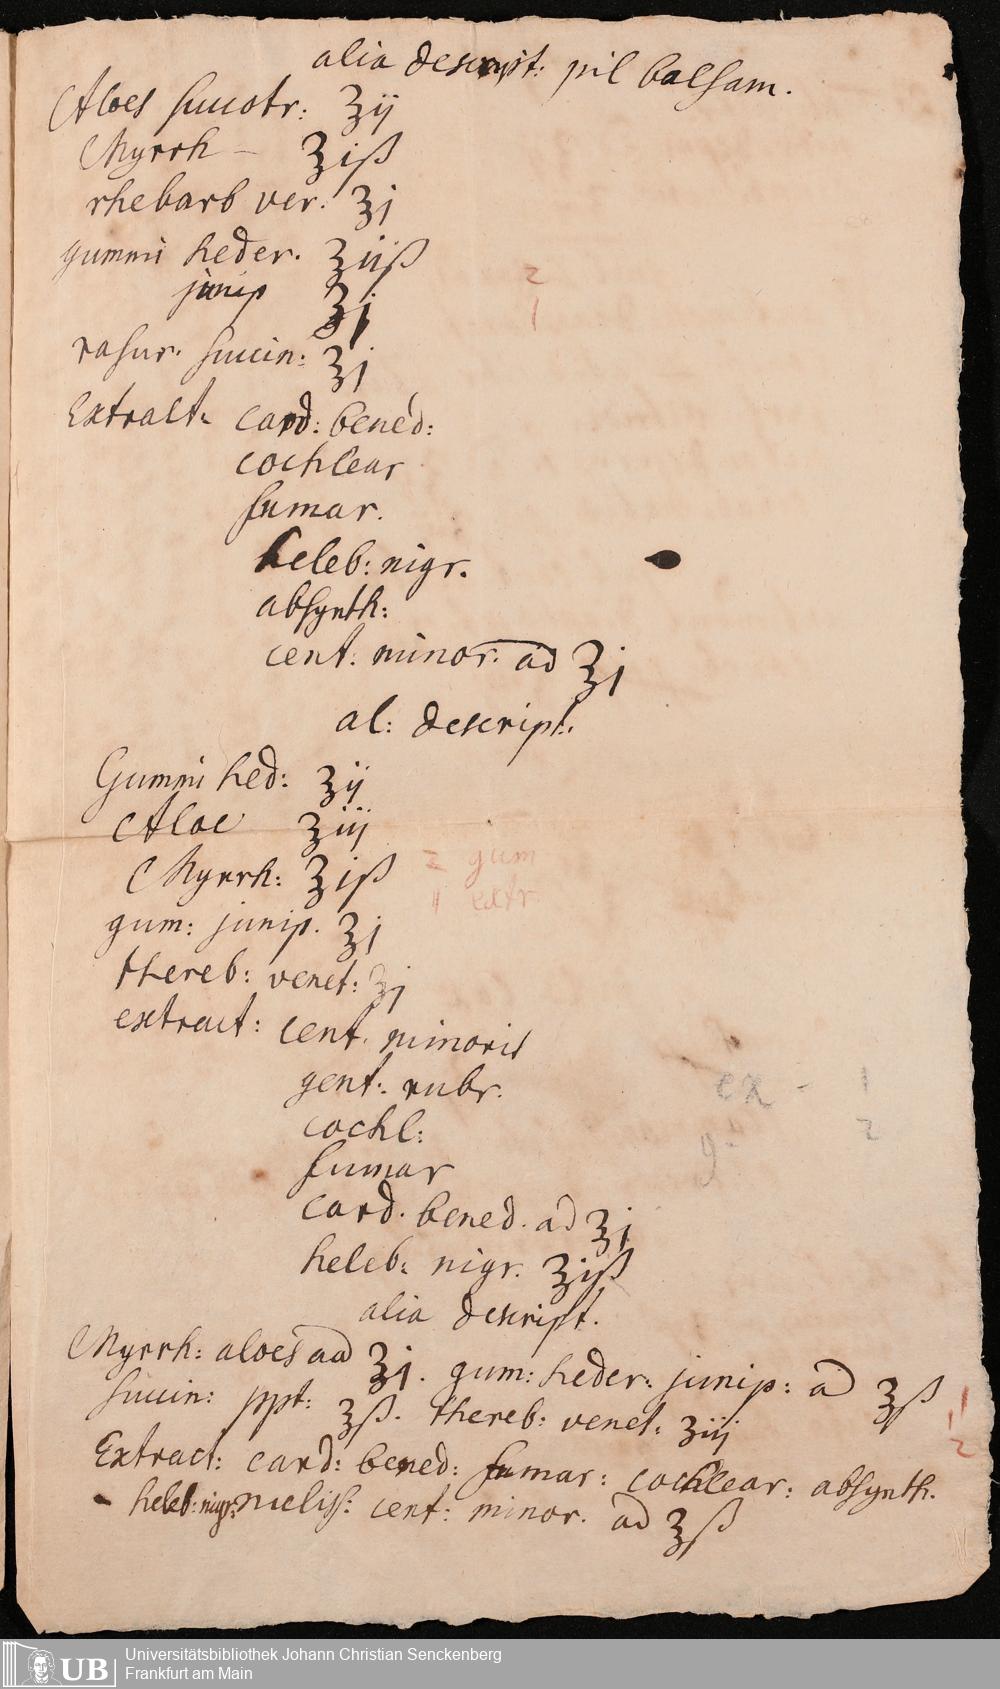 alia descript: pil balsam.
Aloes succotr: ℥ij
Myrrh – ℥iß
rhebarb ver. ℥j
gummi heder. ℥iiß
junip ℥j
2
1
rasur. succin: ℥j
Extract. card: bened:
cochlear
fumar.
heleb: nigr.
absynth:
cent. minor. ad ℥j
al: descript.
Gummi hed: ʒij
Aloe ʒiij
Myrrh: ʒiß
2 gum
1 extr
gum: junip. ʒj
thereb: venet: ʒj
extract: cent. minoris
gent: rubr.
ex - 1
g - 2
cochl:
fumar
card. bened. ad ʒj
heleb: nigr. ʒiß
alia descript.
Myrrh: aloes aad ℥j. gum: heder: junip: ad ℥ß
succin: ppt: ℥ß. thereb: venet: ʒiij
1
2
Extract: card: bened: fumar: cochlear: absynth.
heleb: nigr: meliss: cent: minor. ad ℥ß
Universitätsbibliothek Johann Christian Senckenberg
Frankfurt am Main
UB